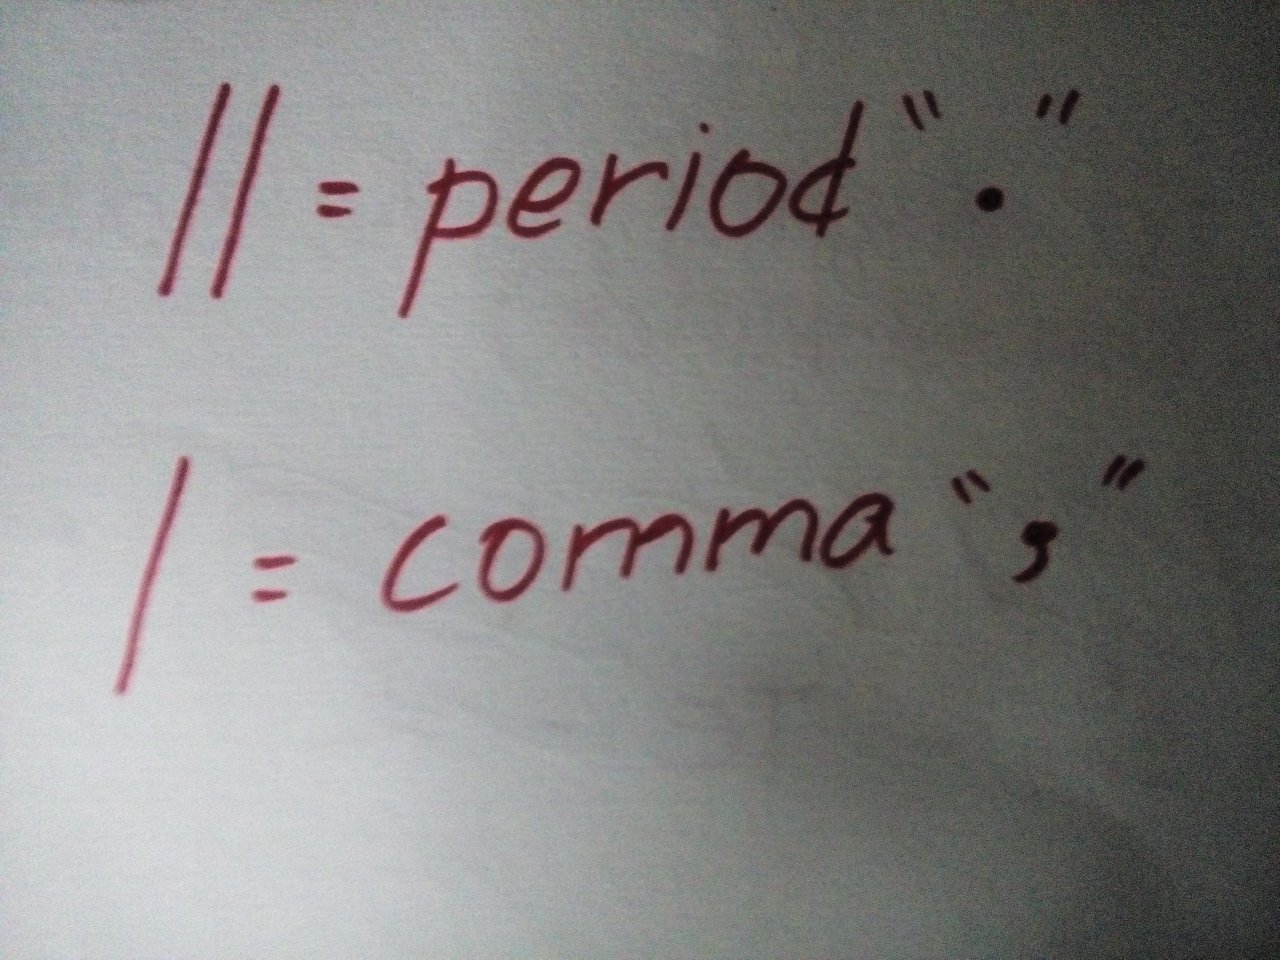 // = period “ . ”
/ = comma “ , ”